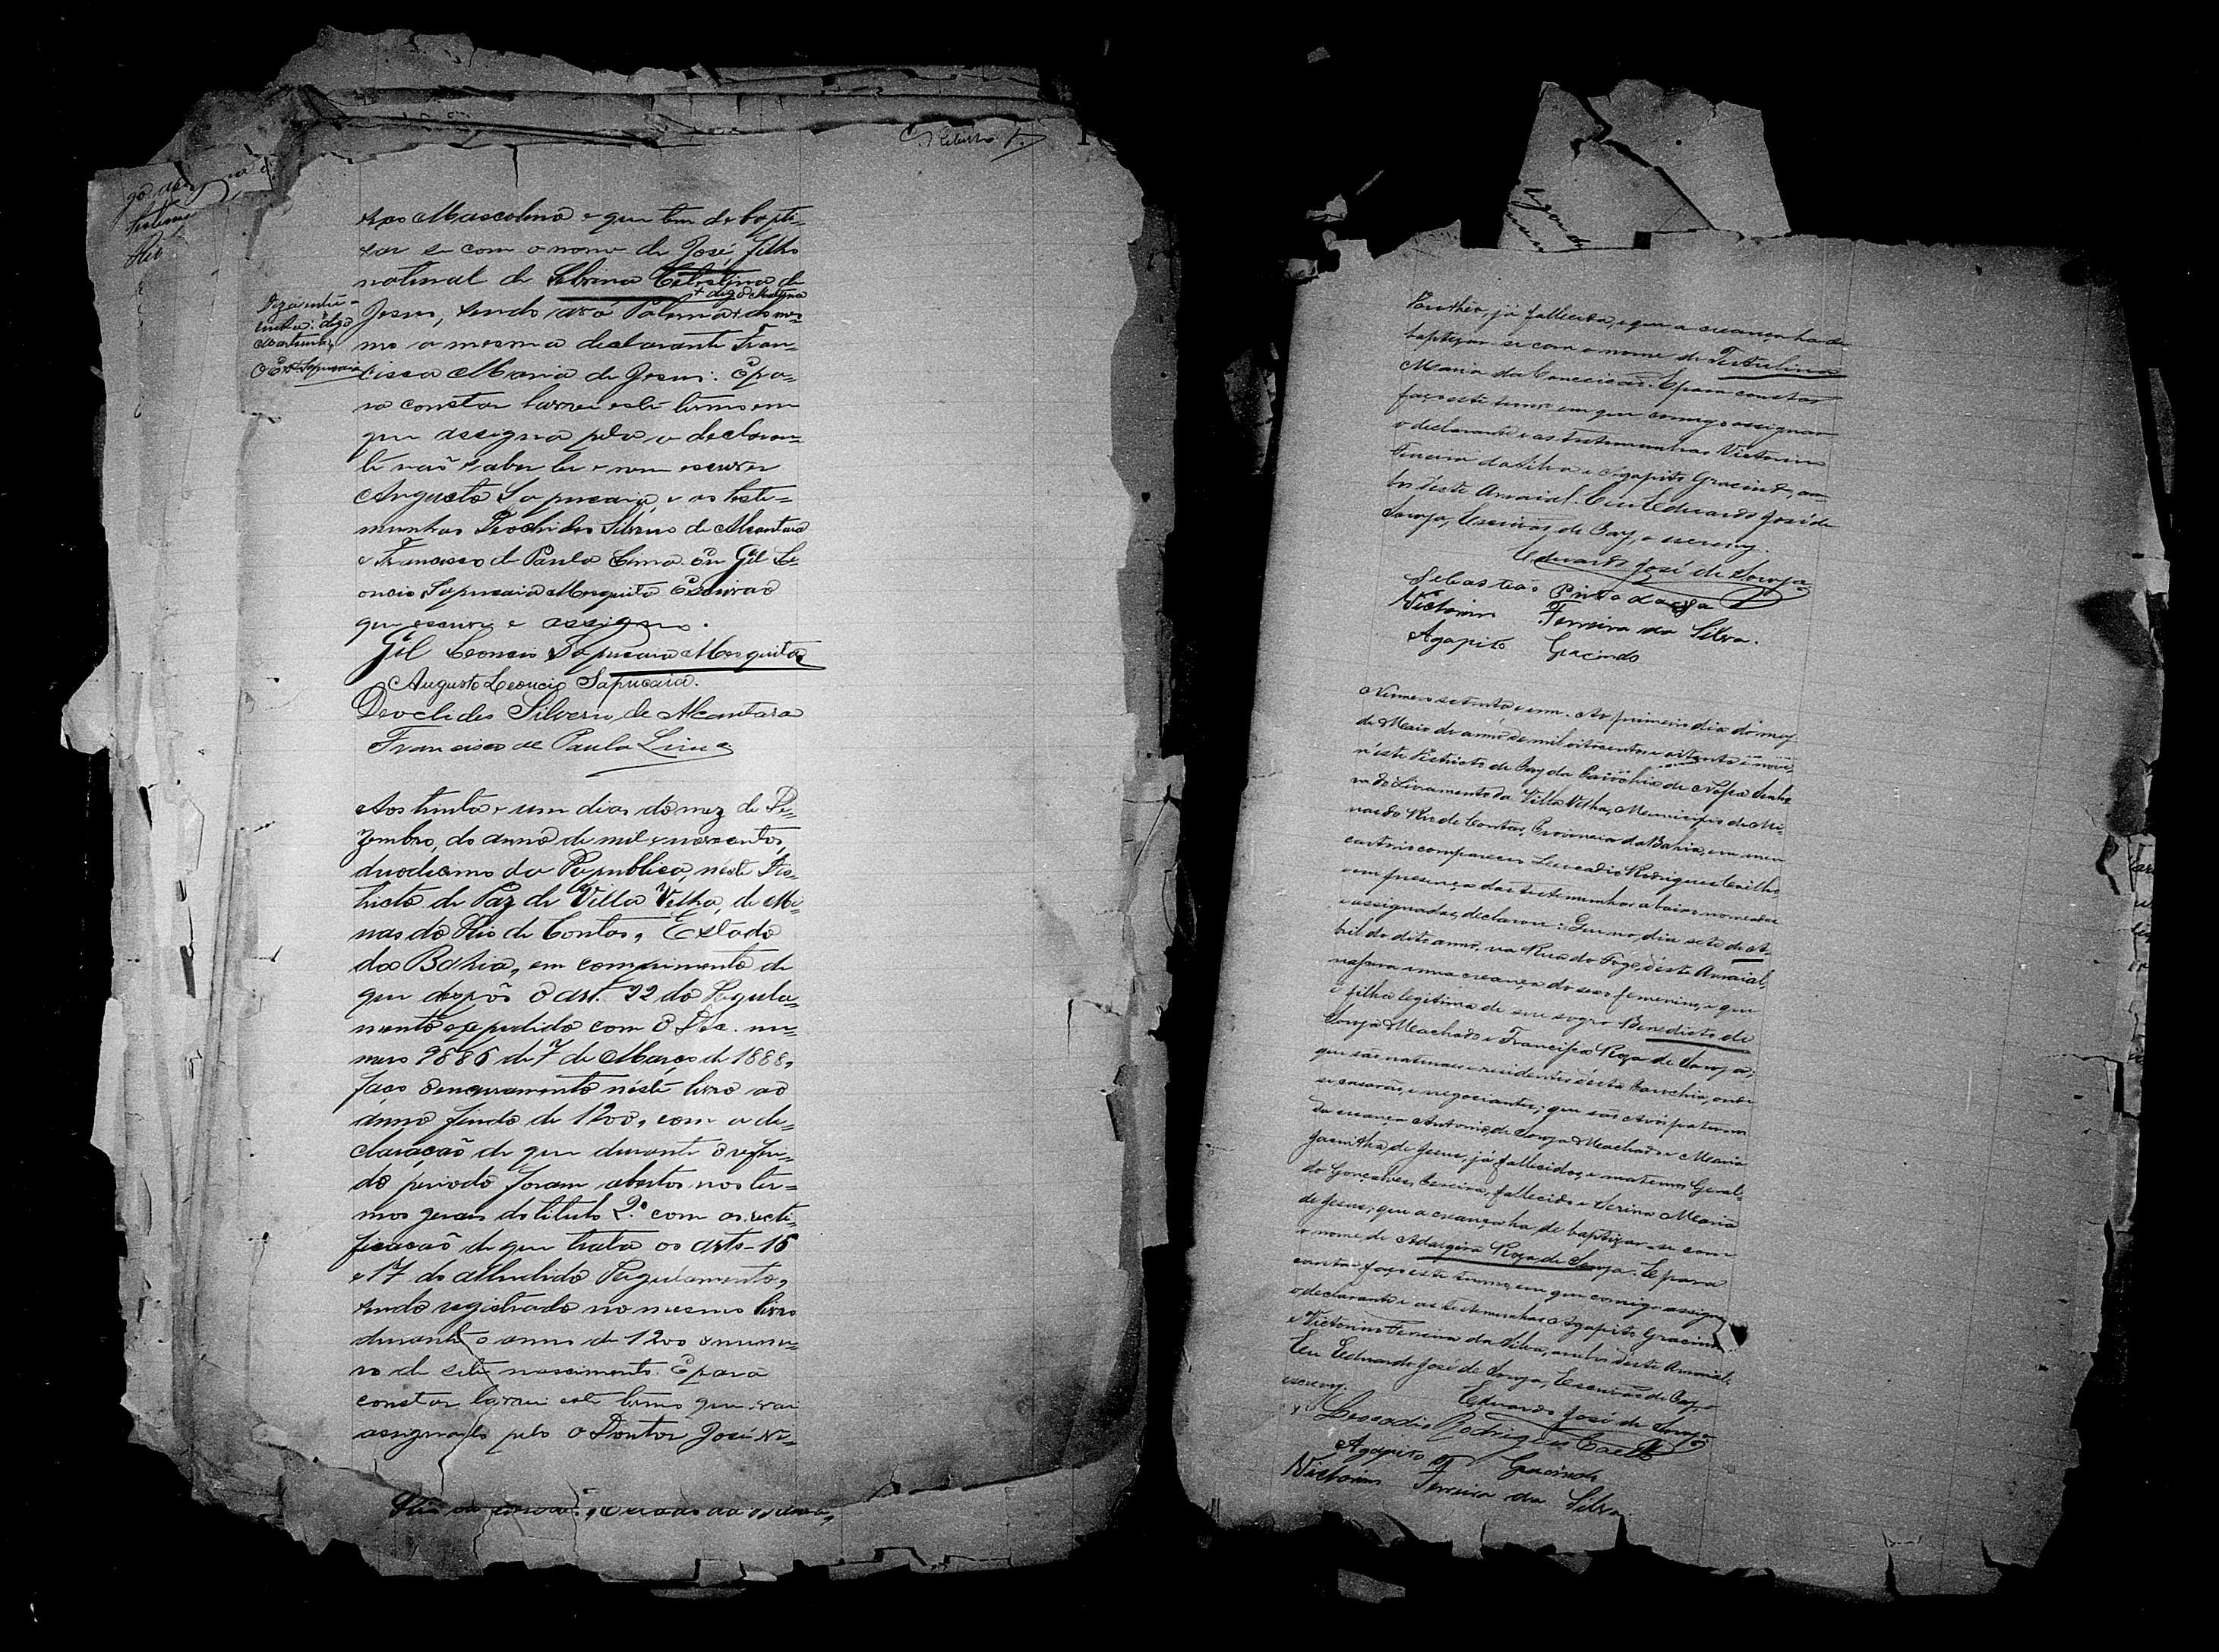 xo Masculino e que tem de bapti-
sar se com o nome de José, filho
natural de Celestina de
+ digo Materna
Jesus, sendo avó Paterna + do mes-
mo a mesma declarante Fran-
cisca Maria de Jesus. E pa-
ra constar lavrei este termo em
que assigna pela a declaran-
te não saber ler e nem escrever
Augusto Sapucaia, e as teste-
munhas Deoclides Silverio de Alcantara
e Francisco de Paula Lima. Eu Gil Le-
oncio Sapucaia Mesquita Escrivão
que escrevi e assigno.
Gil Leoncio Sapucaia Mesquita
Augusto Leoncio Sapucaia.
Deoclides Silverio de Alcantara
Francisco de Paula Lima
digo
Materna
O Esc. Sapucaia
Aos trinta e um dias do mez de De-
zembro, do anno de mil e novecentos,
duodecimo da Republica néste Dis-
tricto de Paz de Villa Velha, de Mi-
nas do Rio de Contas, Estado
da Bahia, em comprimento do
que dispõs o art. 22 do Regula-
mento expedido com o Dec. nu-
mero 9886 de 7 de Março de 1888,
faço o encerramento néste livro ao
anno findo de 1900, com a de-
claração de que durante o referi-
do periodo foram abertos nos ter-
mos geraes do titulo 2.º com as recti-
ficacão de que trata os arts. 16
e 17 do alludido Regulamento,
sendo registrado no mesmo livro
durante o anno de 1900 o nume-
ro de sete nascimento. E para
constar lavrei este termo que vai
assignado pelo o Doutor José
já fallecida, e que a creança ha de
baptizar-se com o nome de Tertulina
Maria da Conceicão. E para constar
faço este termo em que comigo assignão
o declarante e as testemunhas Victorino
Ferreira da Silva e Agapito Gracindo, am-
bos d'este Arraial. Eu Eduardo José de
Souza, Escrivão de Paz, o escrevy.
Eduardo José de Souza
Sebastião Pinto
Victorino Ferreira da Silva.
Agapito Gracindo
Numero setenta e um. Ao primeiro dia do mez
de Maio do anno de mil oitocentos e oitenta e nove,
n'este Districto de Paz da Parochia de Nossa Senho-
ra do Livramento da Villa Velha, Municipio de Mi-
nas do Rio de Contas, Provincia da Bahia, em meu
cartorio compareceu Leocadio Rodrigues Coelho
e em presença das testemunhas abaixo nomeadas
e assignadas, declarou: Que no dia sete de A-
bril do dito anno, na Rua do Fogo, d'este Arraial,
nascera uma creança do sexo femenino, e que
é filha legitima de seu sogro Benedicto de
Souza Machado e Francisca Roza de Souza;
que são naturaes e residentes d'esta Parochia, onde
se casarão, e negociantes; que são Avós paternos
da creança Antonio de Souza Machado e Maria
Jacintha de Jesus, já fallecidos, e maternos Geral-
do Gonçalves Pereira, fallecido e Serina Maria
de Jesus; que a creança ha de baptizar-se com
o nome de Adalgiza Roza de Souza. E para
constar faço este termo, em que comigo assigna
o declarante e as testemunhas Agapito Gracindo
e Victorino Ferreira da Silva, ambos d'este Arraial.
Eu Eduardo José de Souza, Escrivão de Paz, o
escrevy.
Eduardo José de Souza
Leocadio Rodrigues Coelho
Agapito Gracindo
Victorino Ferreira da Silva.